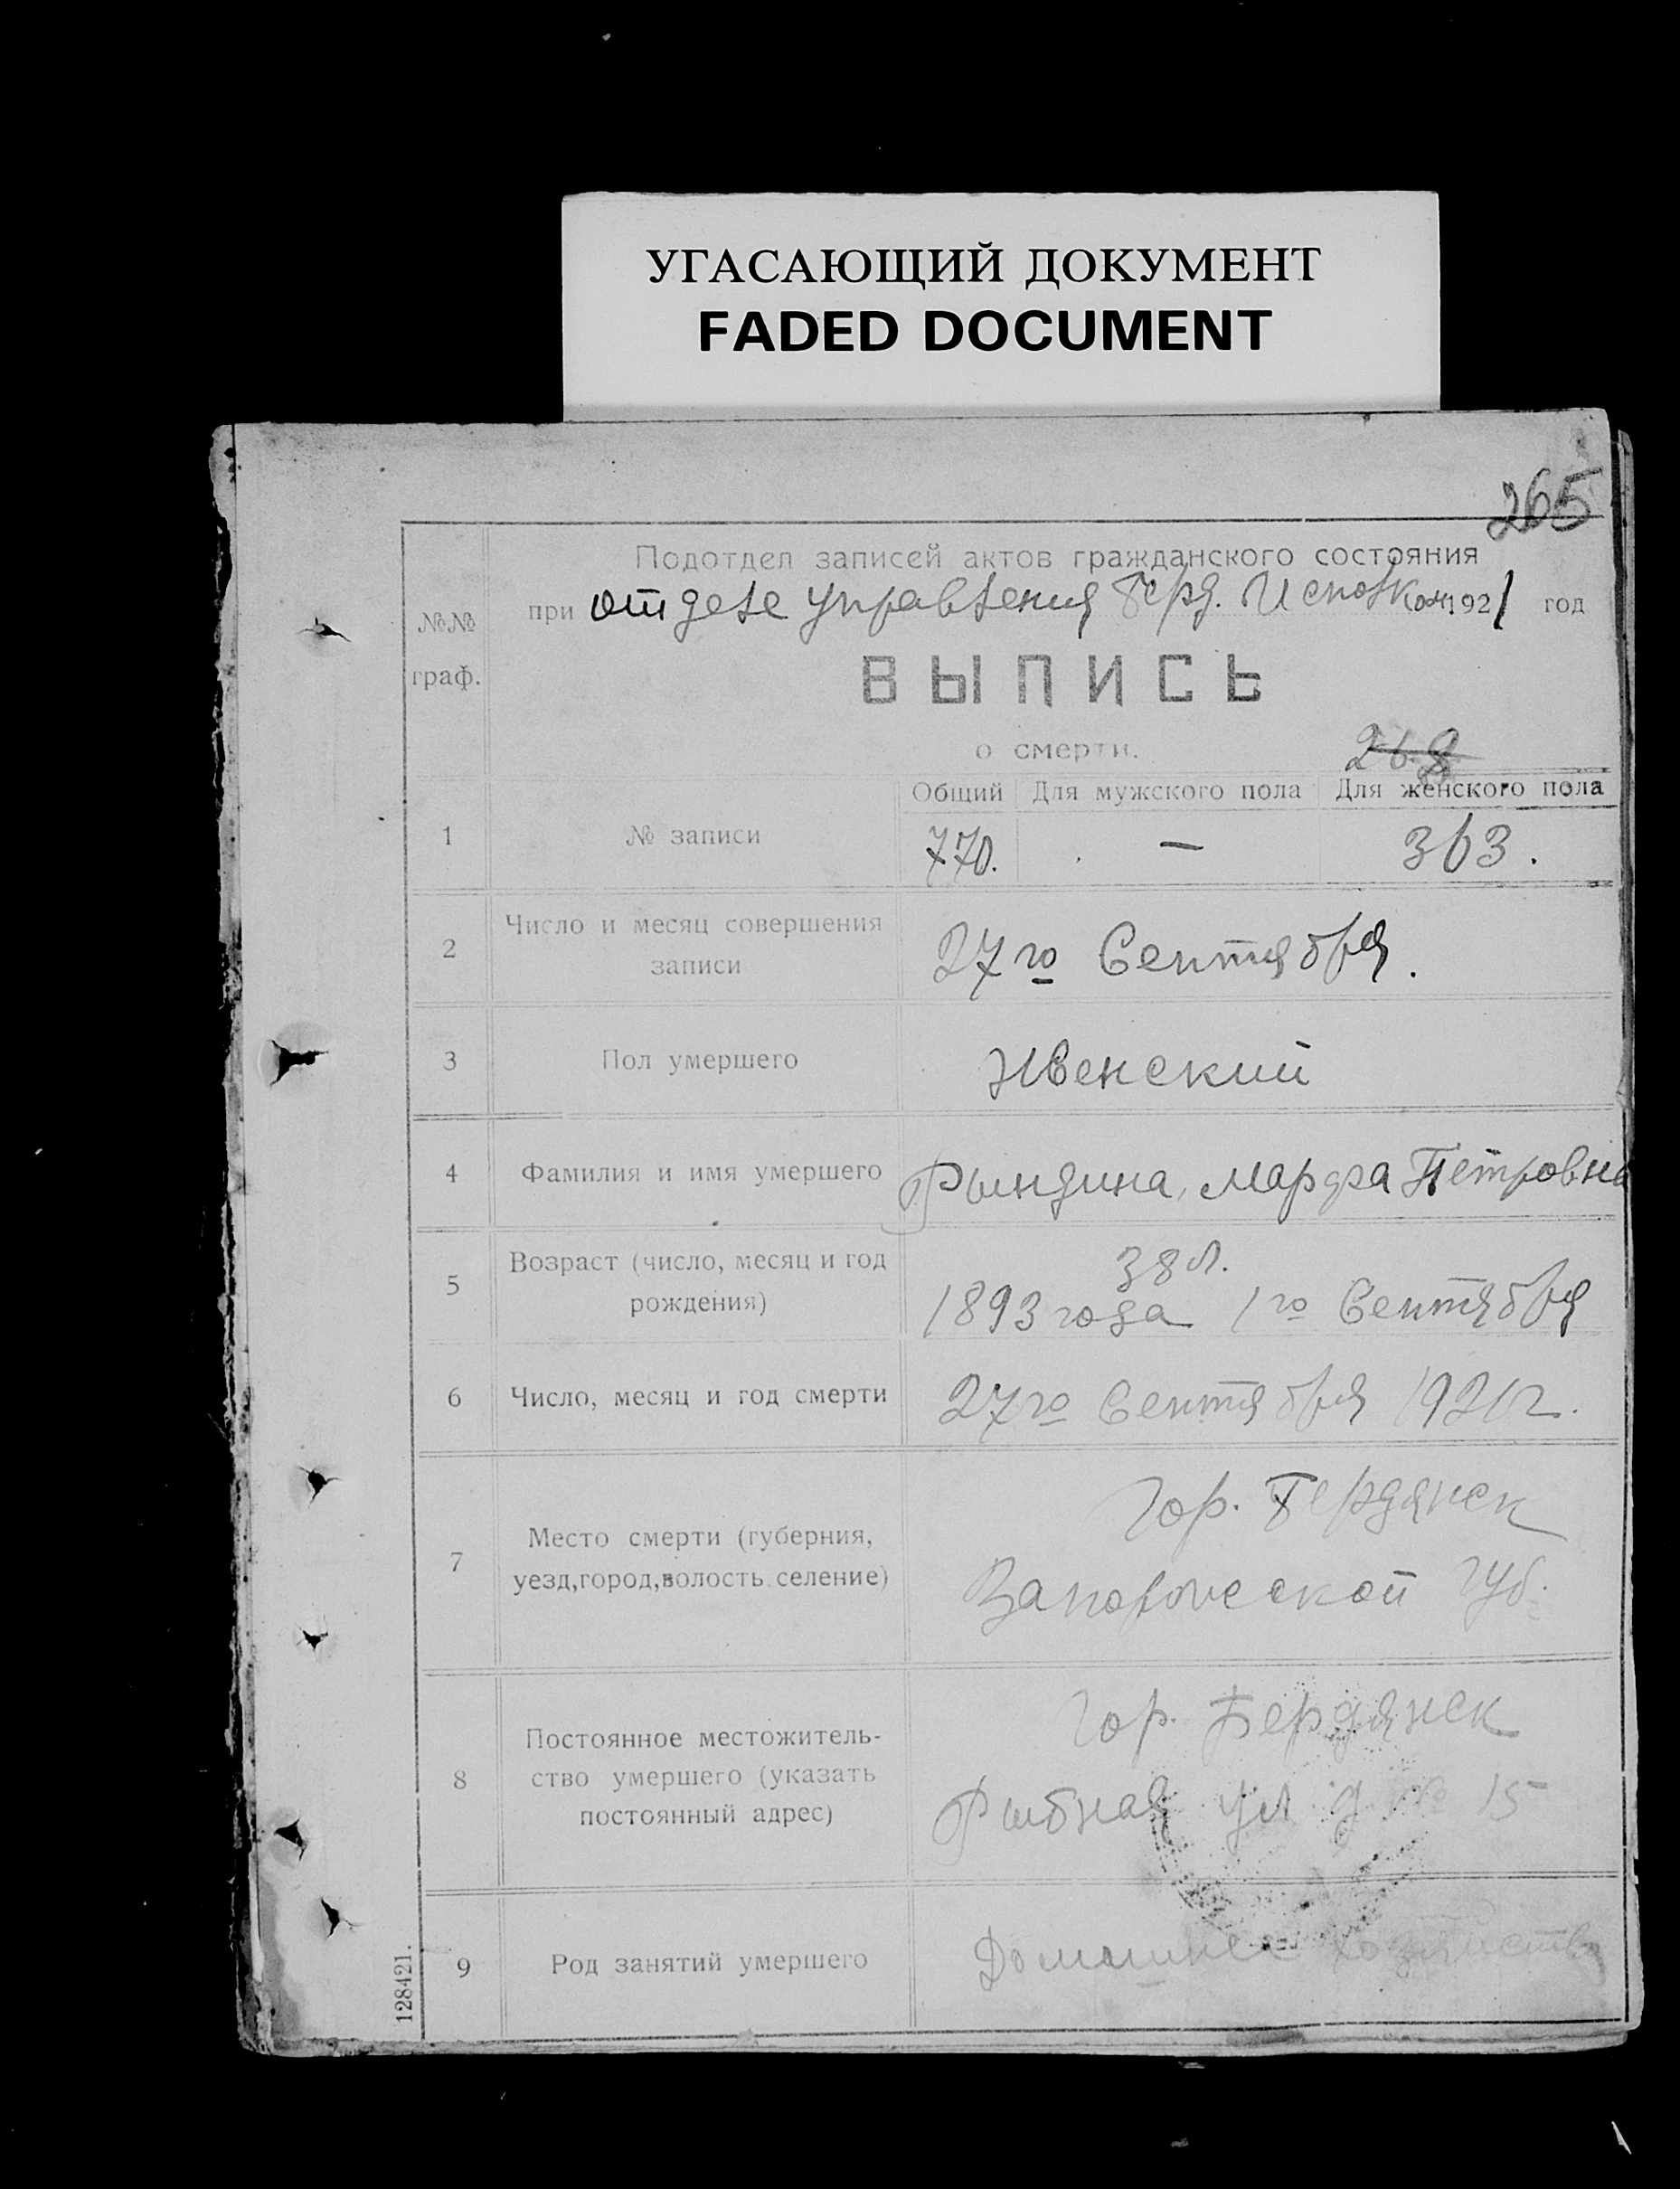 УГАСАЮЩИЙ ДОКУМЕНТ
FADED DOCUMENT
265
Подотдел записей актов гражданского состояния
при отделе управления Берд. Исполком 1921 год
№№ граф.
ВЫПИСЬ
о смерти.
268
Общий Для мужского пола Для женского пола
1 № записи 770. — 363.
2 Число и месяц совершения записи 27го Сентября.
3 Пол умершего Женский
4 Фамилия и имя умершего Рындина, Марфа Петровна
5 Возраст (число, месяц и год рождения) 38 л.
1893 года 1го Сентября
6 Число, месяц и год смерти 27го Сентября 1921 г.
7 Место смерти (губерния, уезд, город, волость селение) Гор. Бердянск
Запорожской губ.
8 Постоянное местожитель-
ство умершего (указать постоянный адрес) Гор. Бердянск
Рыбная ул д № 15
9 Род занятий умершего Домашнее хозяйство
128421.